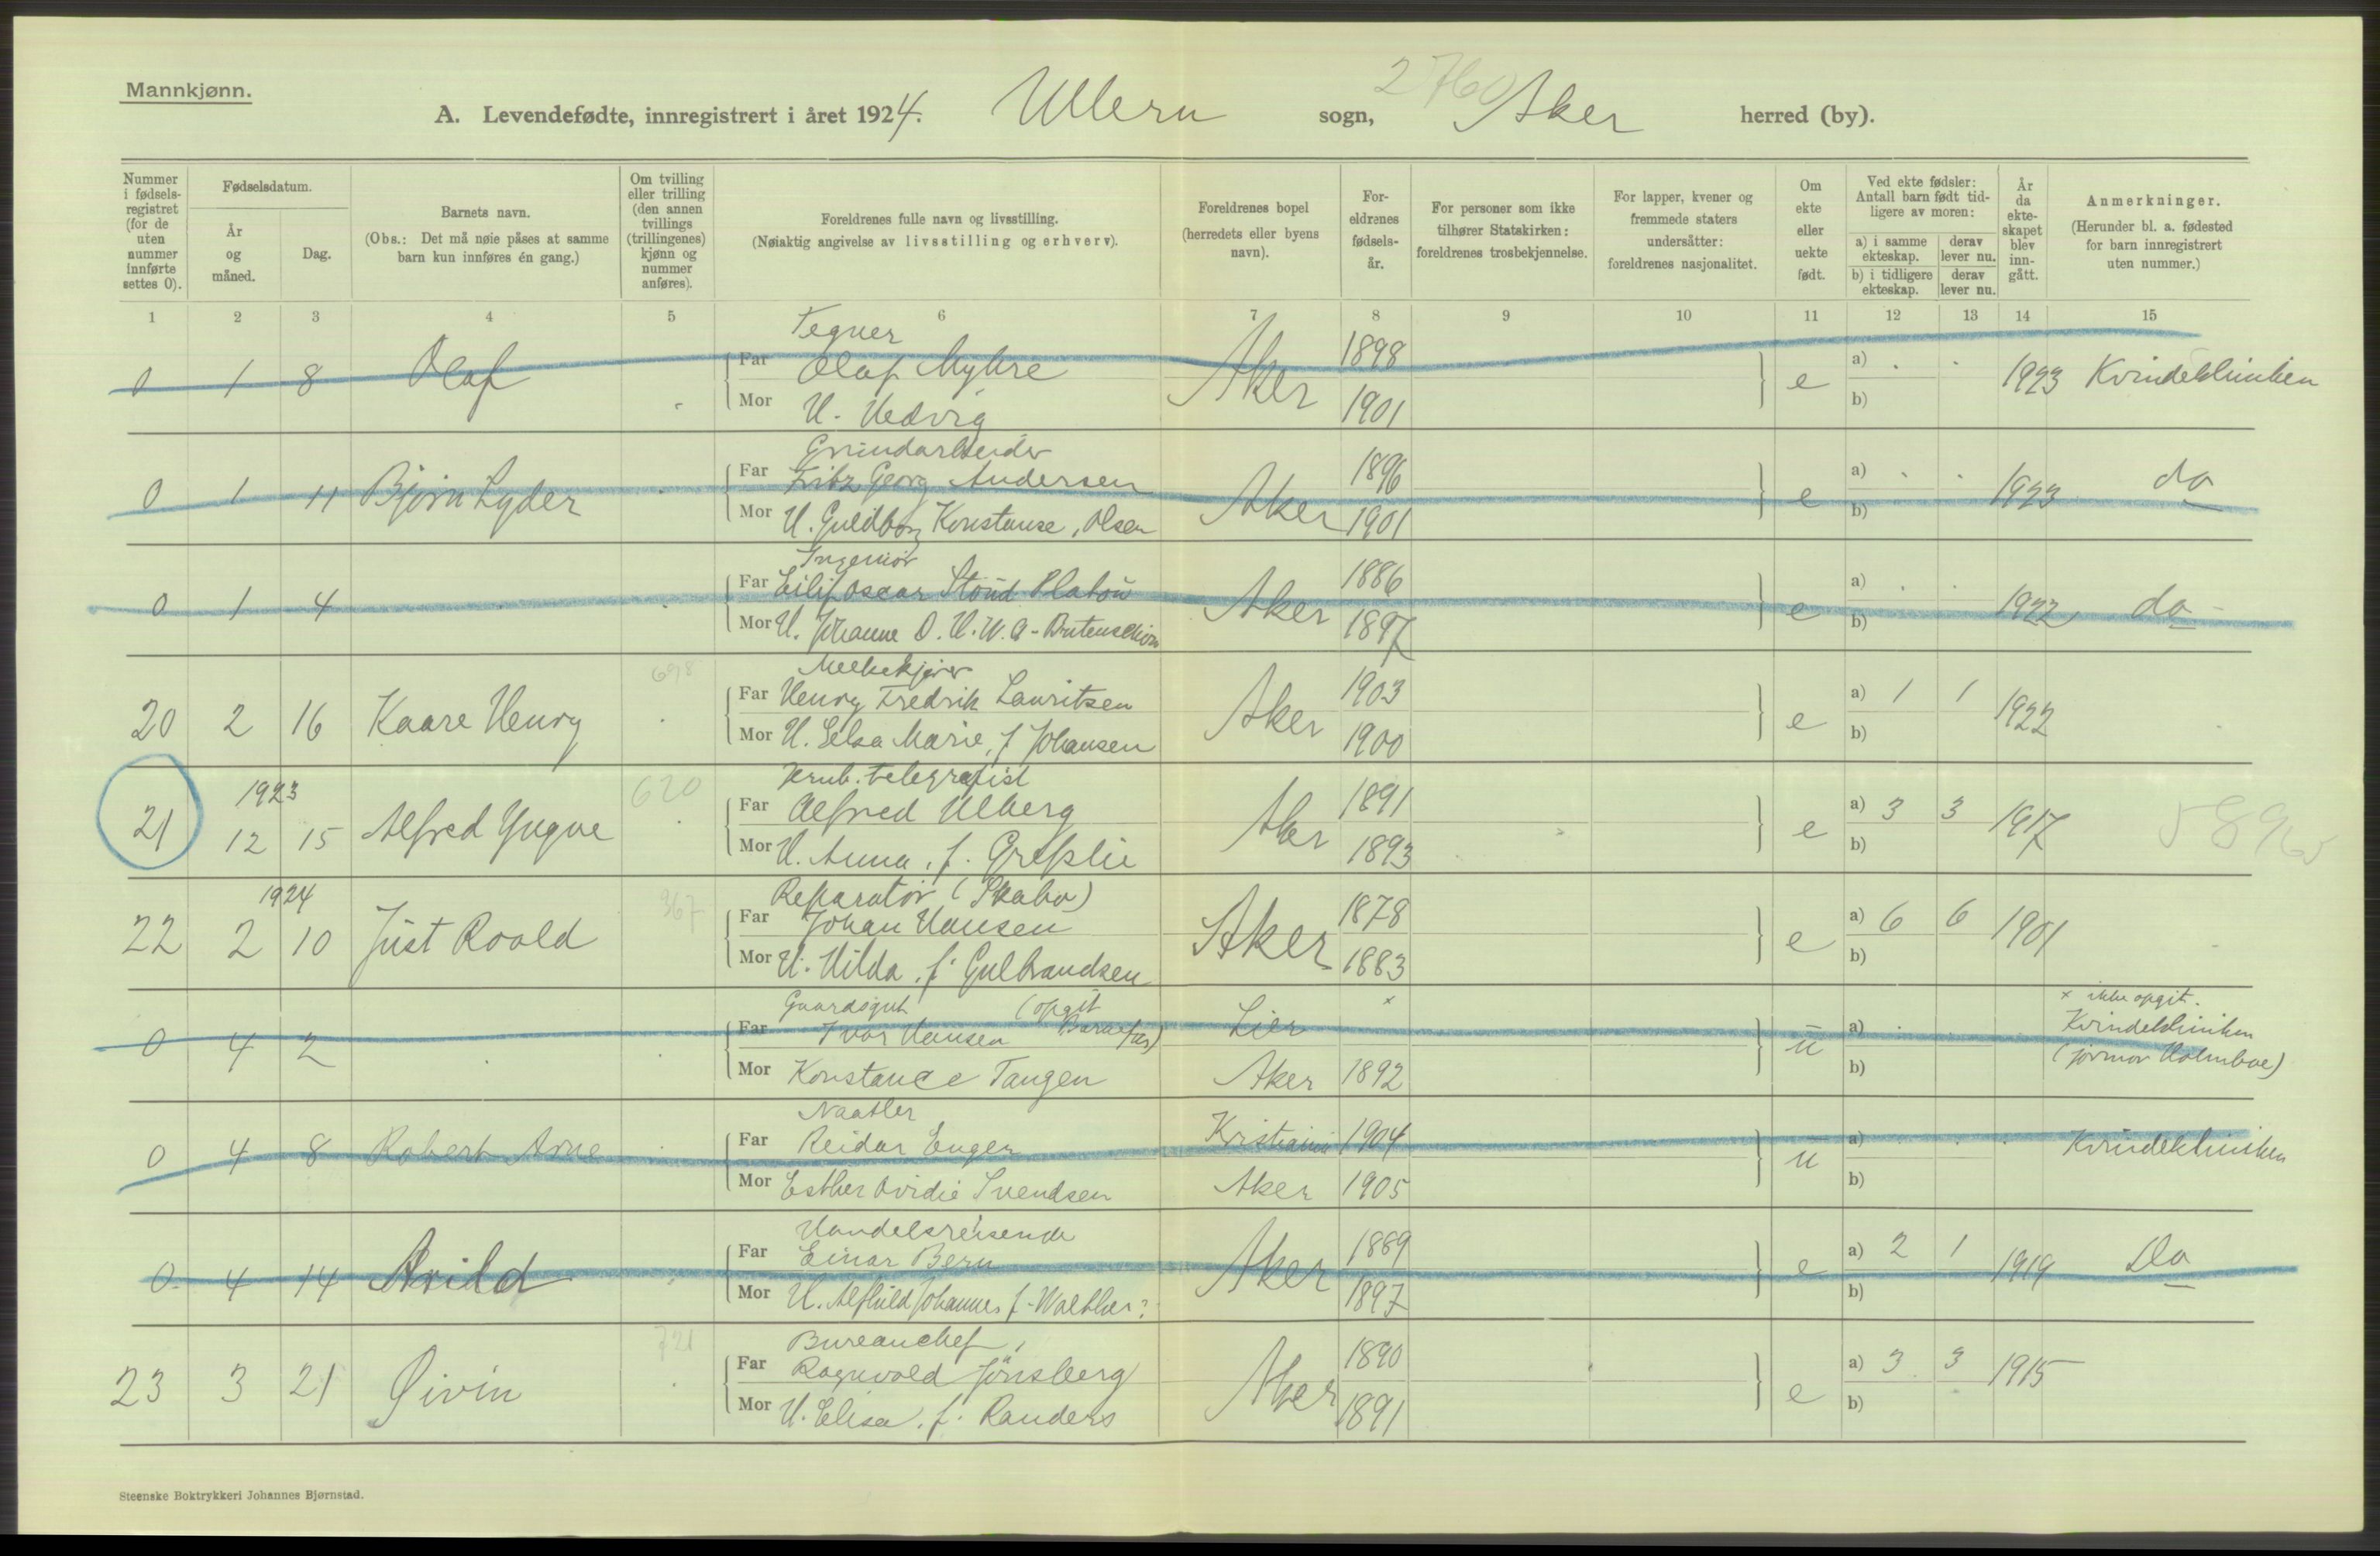 Mannkjønn.
2760
A. Levendefødte, innregistrert i året 1924. Ullern sogn, Aker herred (by).
Nummer i fødselsregistret (for de uten nummer innførte settes 0).
Fødselsdatum.
År og måned.
Dag.
Barnets navn.
(Obs.: Det må nøie påses at samme barn kun innføres én gang.)
Om tvilling eller trilling (den annen tvillings (trillingenes) kjønn og nummer anføres).
Foreldrenes fulle navn og livsstilling.
(Nøiaktig angivelse av livsstilling og erhverv).
Foreldrenes bopel (herredets eller byens navn).
Foreldrenes fødselsår.
For personer som ikke tilhører Statskirken: foreldrenes trosbekjennelse.
For lapper, kvener og fremmede staters undersåtter: foreldrenes nasjonalitet.
Om ekte eller uekte født.
Ved ekte fødsler: Antall barn født tidligere av moren:
a) i samme ekteskap. derav lever nu.
b) i tidligere ekteskap. derav lever nu.
År da ekteskapet blev inngått.
Anmerkninger.
(Herunder bl. a. fødested for barn innregistrert uten nummer.)
1 2 3 4 5 6 7 8 9 10 11 12 13 14 15
Tegner
0 1 8 Olaf Far Olaf Myhre Aker 1898 e a) . . 1923 Kvindeklinikken
Mor H. Hedvig 1901 b)
Grindarbeider
0 1 11 Bjørn Lyder . Far Fritz Georg Andersen Aker 1896 e a) . . 1923 do
Mor H. Guldborg Konstanse, Olsen 1901 b)
Ingeniør
0 1 4 . . Far Eilif Oscar Stoud Platou Aker 1886 e a) . . 1922 do
Mor H. Johanne O. H. W. A - Butenschøn 1897 b)
698 Melkekjører
20 2 16 Kaare Henry . Far Henry Fredrik Lauritsen Aker 1903 e a) 1 1 1922
Mor H. Elsa Marie, f Johansen 1900 b)
1923 620 Jernb. telegrafist
21 12 15 Alfred Yngve . Far Alfred Ulberg Aker 1891 e a) 3 3 1917
Mor H. Anna, f. Grefslie 1893 b)
1924 967 Reparatør (Skabo)
22 2 10 Just Roald Far Johan Hansen Aker 1878 e a) 6 6 1901
Mor H. Hilda, f. Gulbrandsen 1883 b)
Gaardsgut (opgit Barnefar) x ikke opgit.
0 4 2 . . Far Ivar Hansen Lier x u a) . . . Kvindeklinikken
Mor Konstance Tangen Aker 1892 b) (jormor Holmboe)
Naatler
0 4 8 Robert Arne . Far Reidar Engen Kristiania 1904 u a) . . . Kvindeklinikken
Mor Esther Ovidie Svendsen Aker 1905 b)
Handelsreisende
0 4 14 Arild . Far Einar Bern Aker 1889 e a) 2 1 1919 Do
Mor H. Alfhild Johannes f. Walther? 1897 b)
721 Bureauchef,
23 3 21 Øivin . Far Ragnvald Jönsberg Aker 1890 e a) 3 3 1915
Mor H. Elisa, f. Randers 1891 b)
Steenske Boktrykkeri Johannes Bjørnstad.